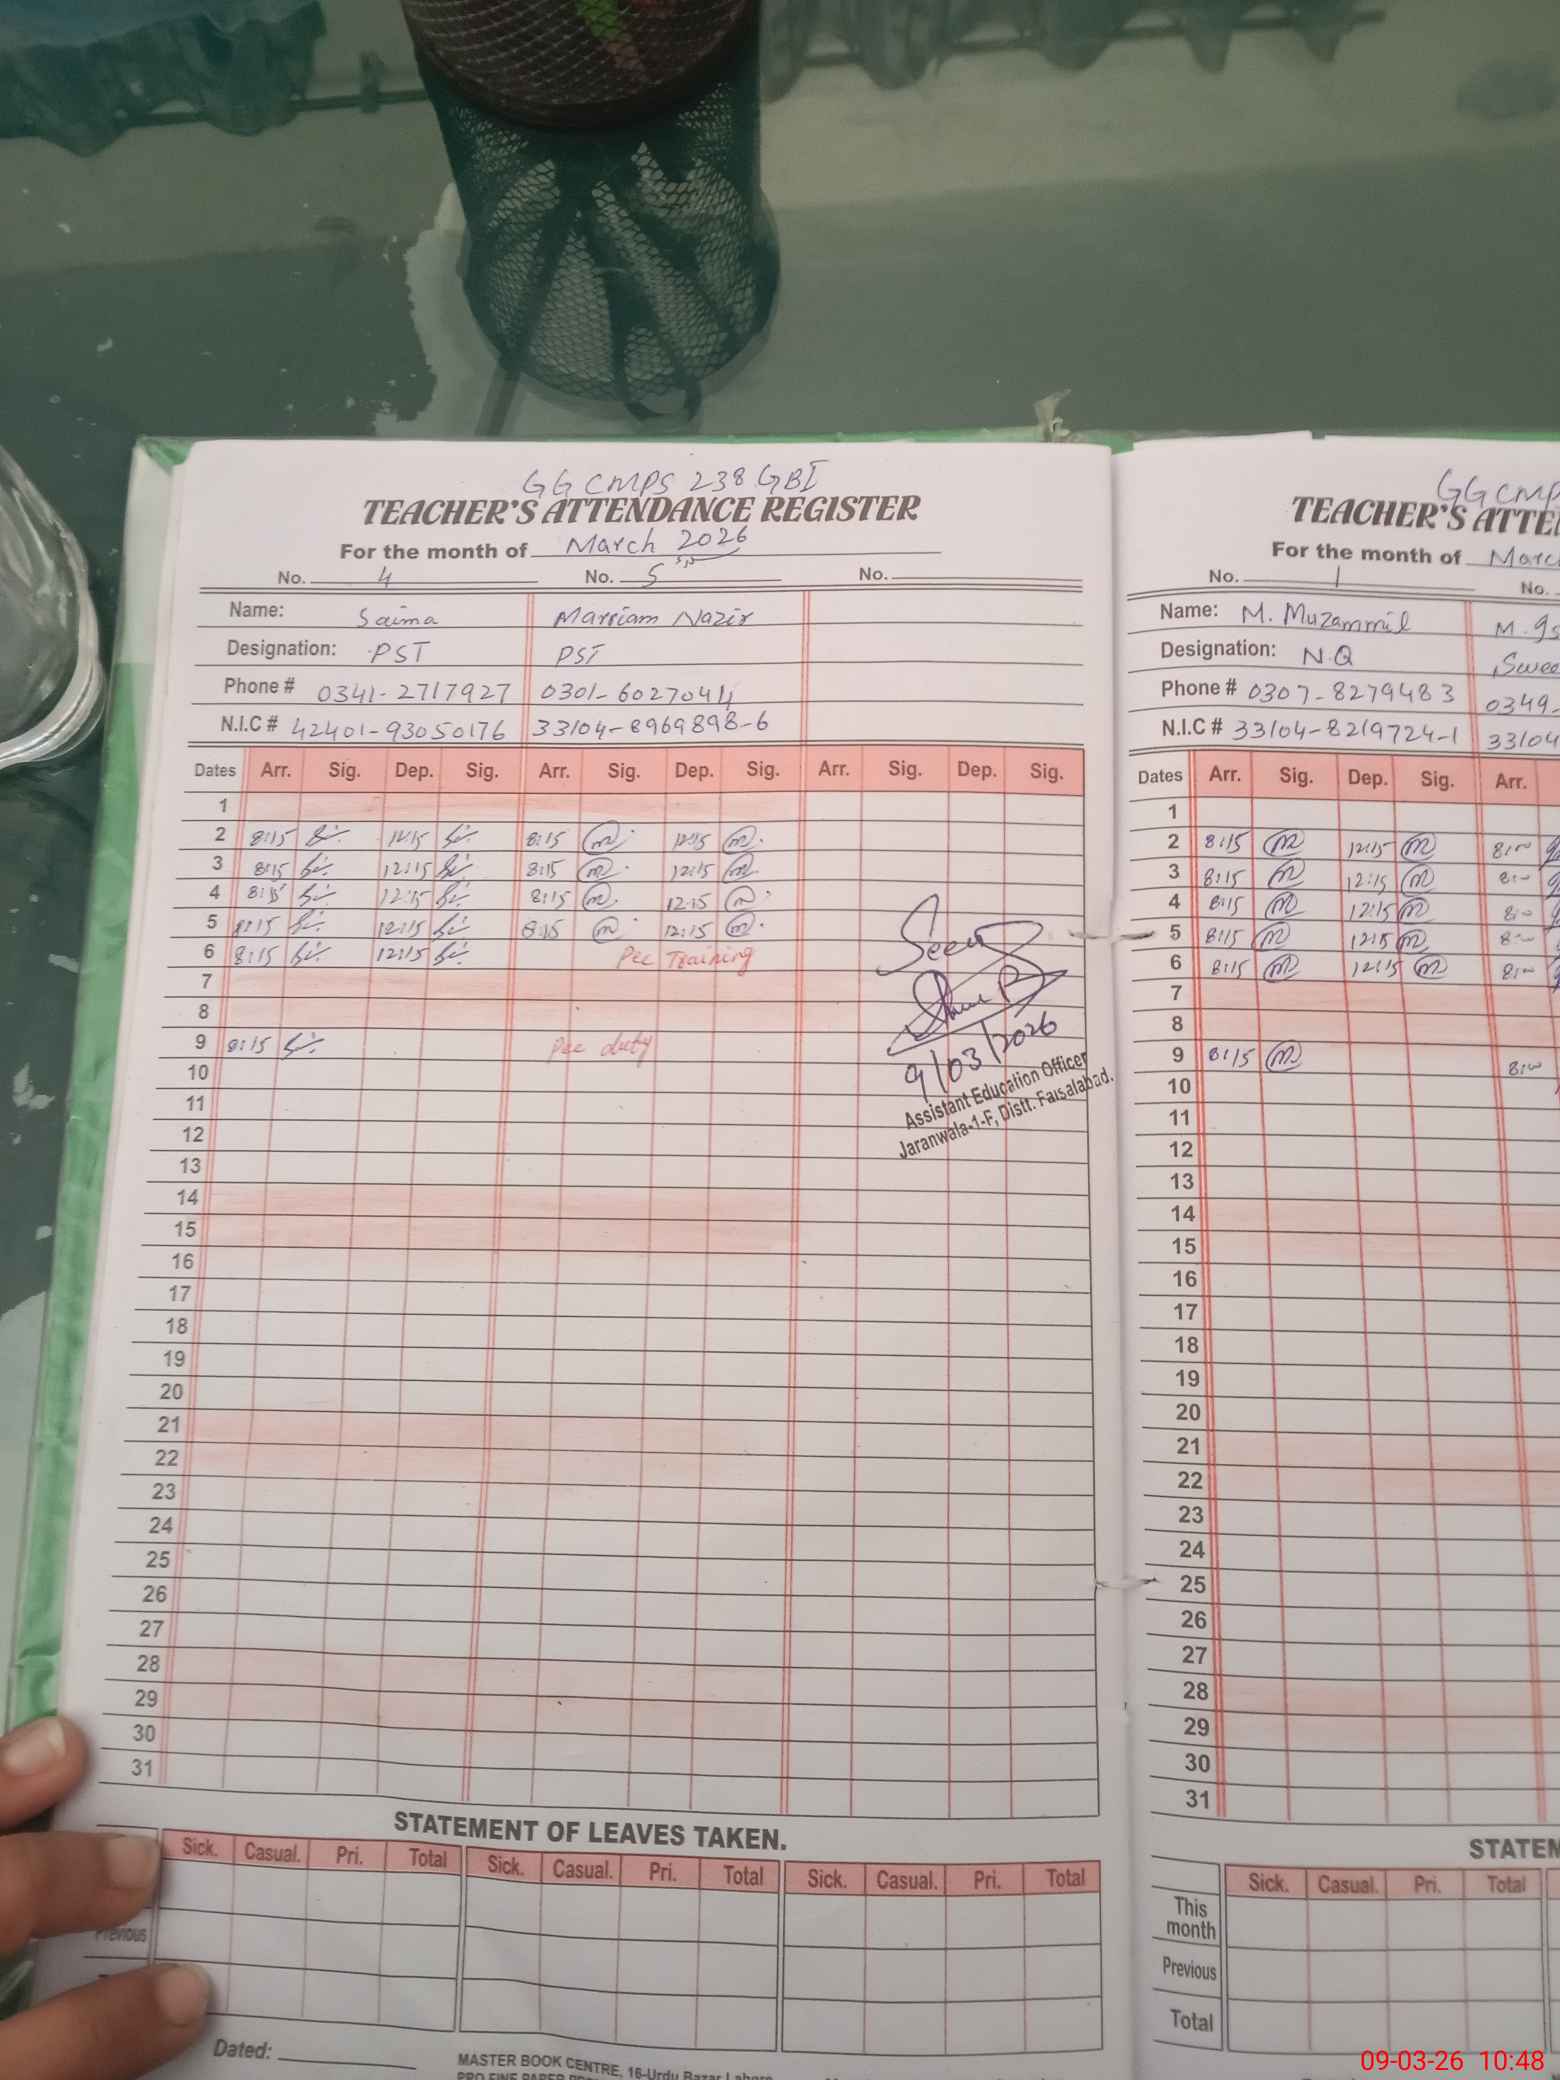 GGCMPS 238 GBI
TEACHER'S ATTENDANCE REGISTER
For the month of March 2026
No. 4 No. 5 No.
Name: Saima Marriam Nazir
Designation: PST PST
Phone # 0341-2717927 0301-6027044
N.I.C # 42401-93050176 33104-8969898-6
Dates Arr. Sig. Dep. Sig. Arr. Sig. Dep. Sig. Arr. Sig. Dep. Sig.
1
2 8:15 12:15 8:15 12:15
3 8:15 12:15 8:15 12:15
4 8:15 12:15 8:15 12:15
5 8:15 12:15 8:15 12:15
6 8:15 12:15 Pec Training
7
8
9 8:15 Pec duty
10
11
12
13
14
15
16
17
18
19
20
21
22
23
24
25
26
27
28
29
30
31
Seen
9/03/2026
Assistant Education Officer
Jaranwala-1-F, Distt. Faisalabad.
STATEMENT OF LEAVES TAKEN.
Sick. Casual. Pri. Total Sick. Casual. Pri. Total Sick. Casual. Pri. Total
Previous
Dated:
MASTER BOOK CENTRE, 16-Urdu Bazar Lahore
GGCMP
TEACHER'S ATTE
For the month of Marc
No. 1 No.
Name: M. Muzammil
Designation: N.Q Swee
Phone # 0307-8279483 0349-
N.I.C # 33104-8219724-1 33104
Dates Arr. Sig. Dep. Sig. Arr.
1
2 8:15 12:15 8:00
3 8:15 12:15 8:00
4 8:15 12:15 8:00
5 8:15 12:15 8:00
6 8:15 12:15 8:00
7
8
9 8:15 8:00
10
11
12
13
14
15
16
17
18
19
20
21
22
23
24
25
26
27
28
29
30
31
STATEM
Sick. Casual. Pri. Total
This month
Previous
Total
09-03-26 10:48